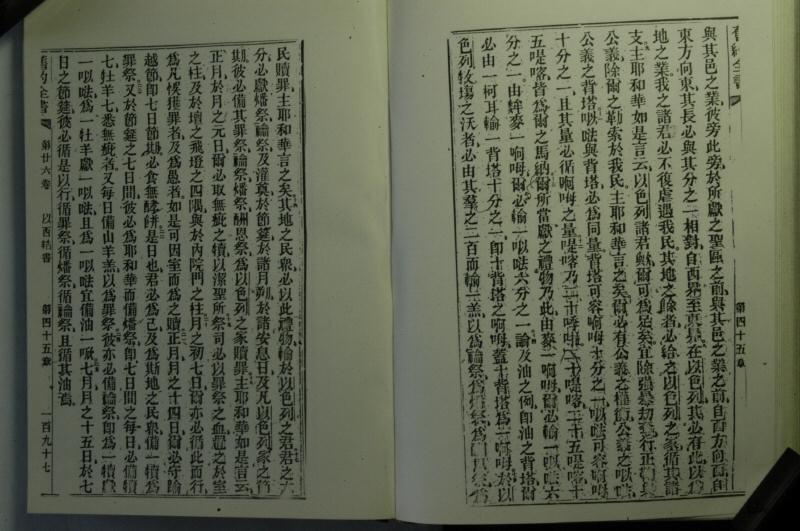 舊約全書
與其邑之業彼旁此旁於所獻之聖區之前與其邑之業之前自西方向西自
東方向東其長必與其分之一相對自西界至東界在以色列其必有此以爲
地之業我之諸君必不復虐遇我民其地之餘者必給之以色列之家循其諸
支主耶和華如是言云以色列諸君歟爾可爲足矣宜除強暴劫奪行正
公義除爾之勒索於我民主耶和華言之矣爾必有公義之權衡公義之以㕸
公義之背塔以㕸與背塔必爲同量背塔可容啊㖼十分之一以㕸可容啊㖼
十分之一且其量必循啊㖼之量
五喼喀皆爲爾之馬納爾所當獻之禮物乃此由麥一啊㖼爾必輸一以㕸六
分之一由麰麥一啊㖼爾必輸一以㕸六分之一論及油之例即油之背塔爾
必由一柯耳輸一背塔十分之一即十背塔之啊㖼蓋十背塔爲一啊㖼於以
色列牧場之沃者必由其羣之二百而輸一羔以爲
第四十五章
民贖罪主耶和華言之矣其地之民衆必以此禮物輸於以色列之君君之
分必獻燔祭及灌奠於節筵於諸月朔於諸安息日及凡以色列家之
期彼必備其罪祭燔祭酬恩祭爲以色列之家贖罪主耶和華如是言云
正月於月之元日爾必取無疵之犢以潔聖所祭司必以罪祭之血釁之於室
之柱及於壇之飛磴之四隅與於內院門之柱月之初七日爾亦必循此而行
爲凡悞獲罪者及爲愚者如是可因室而爲之贖正月月之十四日爾必守踰
越節即七日節期必食無酵餅是日也君必爲己及爲斯地之民衆備一犢爲
罪祭又於節筵之七日間彼必爲耶和華而備燔祭即七日間之每日必備犢
七牡羊七悉無疵者又每日備山羊羔以爲罪祭彼亦必備祭即爲一犢獻
一以㕸爲一牡羊獻一以㕸且爲一以㕸宜備油一㗿七月月之十五日於七
日之節筵彼必循是以行循罪祭循燔祭循祭且循其油焉
舊約全書 第廿六卷 以西結書 第四十五章 一百九十七